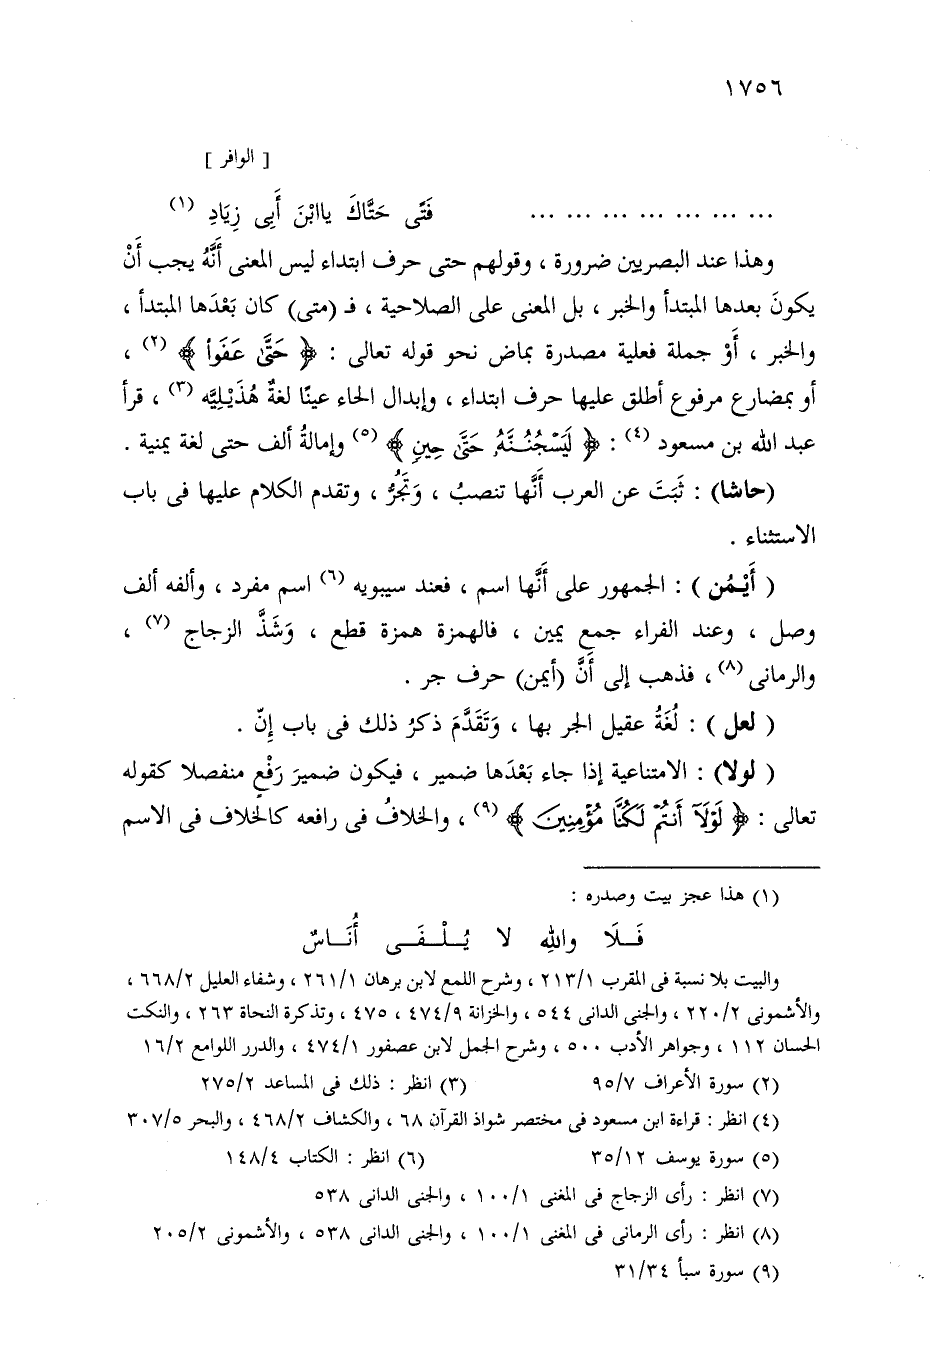 ١٧٥٦
[ الوافر ]
... ... ... ... ... ... ... فَتًى حَتَّاكَ ياابْنَ أَبِى زِيَادِ (١)
وهذا عند البصريين ضرورة ، وقولهم حتى حرف ابتداء ليس المعنى أَنَّهُ يجب أَنْ
يكونَ بعدها المبتدأ والخبر ، بل المعنى على الصلاحية ، فـ (متى) كان بَعْدَها المبتدأ ،
والخبر ، أَوْ جملة فعلية مصدرة بماض نحو قوله تعالى : ﴿ حَتَّىٰ عَفَوا۟ ﴾ (٢) ،
أو بمضارع مرفوع أطلق عليها حرف ابتداء ، وإبدال الحاء عينًا لغةٌ هُذَيْلِيَّه (٣) ، قرأ
عبد الله بن مسعود (٤) : ﴿ لَيَسْجُنُنَّهُۥ حَتَّىٰ حِينٍ ﴾ (٥) وإمالةُ ألف حتى لغة يمنية .
(حاشا) : ثَبَتَ عن العرب أَنَّها تنصبُ ، وَتَجُرُّ ، وتقدم الكلام عليها فى باب
الاستثناء .
( أَيْمُن ) : الجمهور على أَنَّها اسم ، فعند سيبويه (٦) اسم مفرد ، وألفه ألف
وصل ، وعند الفراء جمع يمين ، فالهمزة همزة قطع ، وَشَذَّ الزجاج (٧) ،
والرمانى (٨) ، فذهب إلى أَنَّ (أيمن) حرف جر .
( لعل ) : لُغَةُ عقيل الجر بها ، وَتَقَدَّمَ ذكرُ ذلك فى باب إِنّ .
( لولا) : الامتناعية إذا جاء بَعْدَها ضمير ، فيكون ضميرَ رَفْعٍ منفصلا كقوله
تعالى : ﴿ لَوْلَآ أَنتُمْ لَكُنَّا مُؤْمِنِينَ ﴾ (٩) ، والخلافُ فى رافعه كالخلاف فى الاسم
(١) هذا عجز بيت وصدره :
فَــلَا واللهِ لا يُــلْــفَــى أُنَــاسٌ
والبيت بلا نسبة فى المقرب ٢١٣/١ ، وشرح اللمع لابن برهان ٢٦١/١ ، وشفاء العليل ٦٦٨/٢ ،
والأشمونى ٢٢٠/٢ ، والجنى الدانى ٥٤٤ ، والخزانة ٤٧٤/٩ ، ٤٧٥ ، وتذكرة النحاة ٢٦٣ ، والنكت
الحسان ١١٢ ، وجواهر الأدب ٥٠٠ ، وشرح الجمل لابن عصفور ٤٧٤/١ ، والدرر اللوامع ١٦/٢
(٢) سورة الأعراف ٩٥/٧ (٣) انظر : ذلك فى المساعد ٢٧٥/٢
(٤) انظر : قراءة ابن مسعود فى مختصر شواذ القرآن ٦٨ ، والكشاف ٤٦٨/٢ ، والبحر ٣٠٧/٥
(٥) سورة يوسف ٣٥/١٢ (٦) انظر : الكتاب ١٤٨/٤
(٧) انظر : رأى الزجاج فى المغنى ١٠٠/١ ، والجنى الدانى ٥٣٨
(٨) انظر : رأى الرمانى فى المغنى ١٠٠/١ ، والجنى الدانى ٥٣٨ ، والأشمونى ٢٠٥/٢
(٩) سورة سبأ ٣١/٣٤